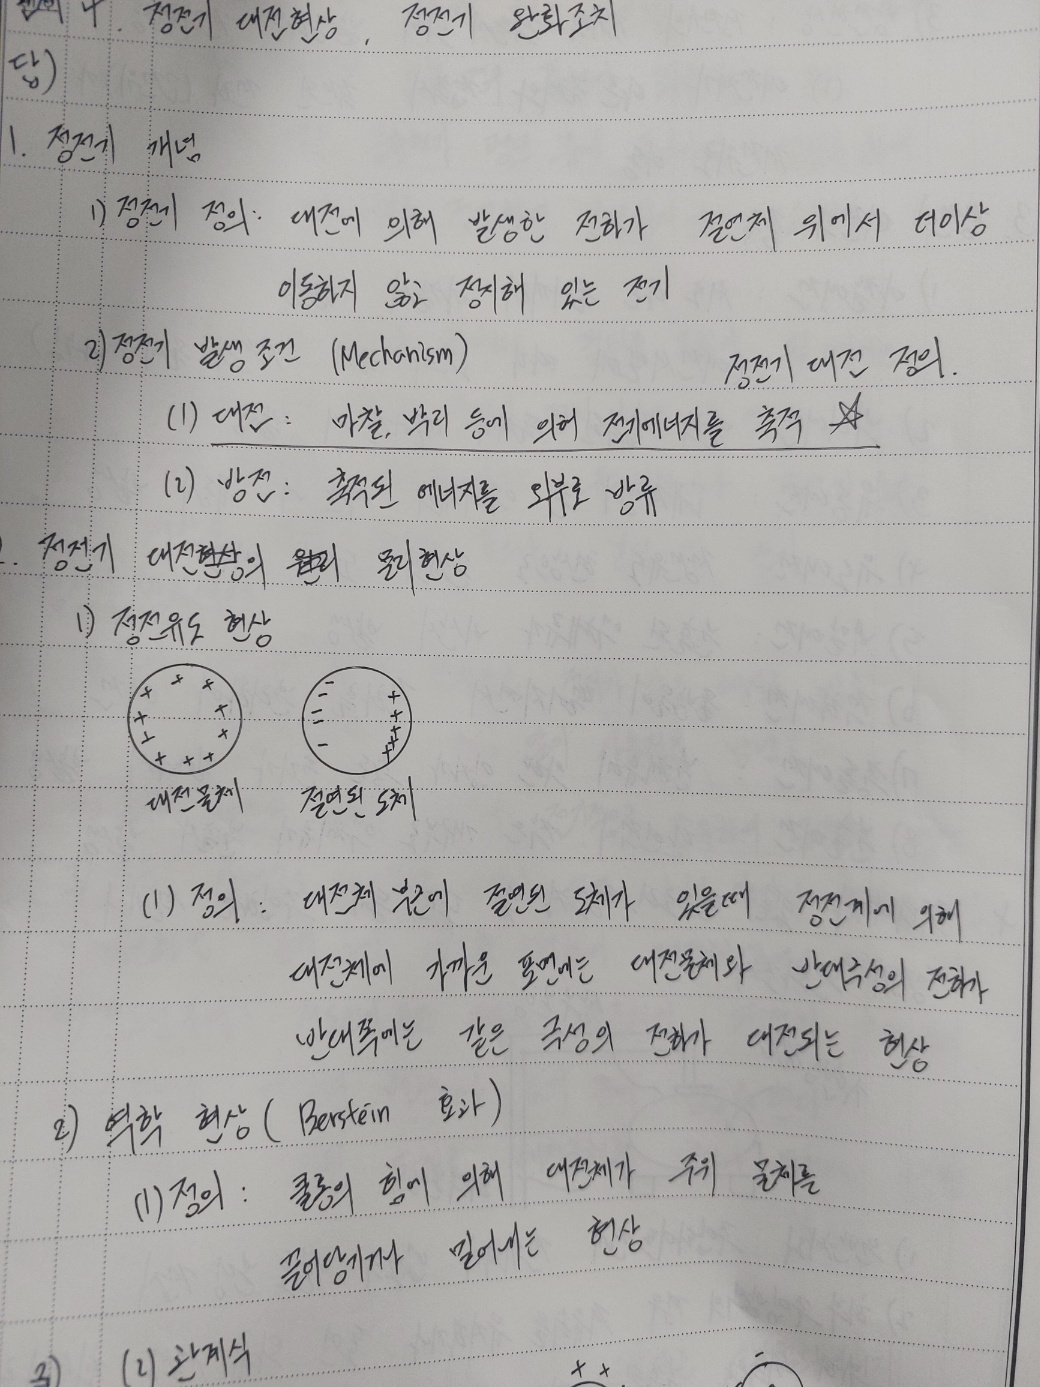 4. 정전기 대전현상, 정전기 완화조치
답)
1. 정전기 개념
1) 정전기 정의: 대전에 의해 발생한 전하가 절연체 위에서 더이상
이동하지 않고 정지해 있는 전기
2) 정전기 발생조건 (Mechanism)
정전기 대전 정의.
(1) 대전: 마찰, 박리 등에 의해 전기에너지를 축적 ☆
(2) 방전: 축적된 에너지를 외부로 방류
. 정전기 대전현상의 물리현상
1) 정전유도 현상
+ + + + + + + + + +
- - - - + + + + +
대전물체 절연된 도체
(1) 정의: 대전체 부근에 절연된 도체가 있을때 정전계에 의해
대전체에 가까운 표면에는 대전물체와 반대극성의 전하가
반대쪽에는 같은 극성의 전하가 대전되는 현상
2) 역학 현상 (Berstein 효과)
(1) 정의: 쿨롱의 힘에 의해 대전체가 주위 물체를
끌어당기거나 밀어내는 현상
(2) 관계식
+ + -